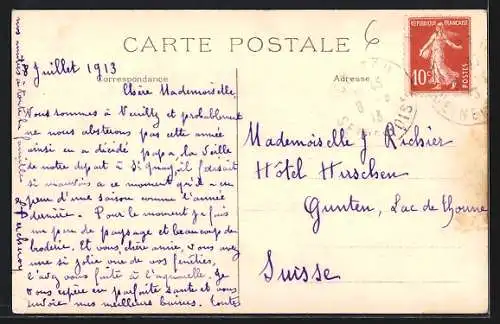 CARTE POSTALE
6
RÉPUBLIQUE FRANÇAISE
10c
POSTES
Correspondance
Adresse
8 Juillet 1913
Chère Mademoiselle,
Nous sommes à Neuilly et probablement
ne nous absterons pas cette année
ainsi en a décidé papa, la veille
de notre départ à St Quay, il faisait
si mauvais a ce moment qu'il a eu
peur d'une saison comme l'année
dernière. Pour le moment je fais
un peu de paysage et beaucoup de
broderie. Et vous, chère amie, vous avez
une si jolie vue de vos fenêtres,
l'avez vous faite à l'aquarelle. Je
vous espère en parfaite santé et vous
envoie mes meilleurs baisers. Toutes
nos amitiés à toute la famille
Mademoiselle J Richier
Hôtel Hirschen
Gunten, Lac de Thoune
Suisse